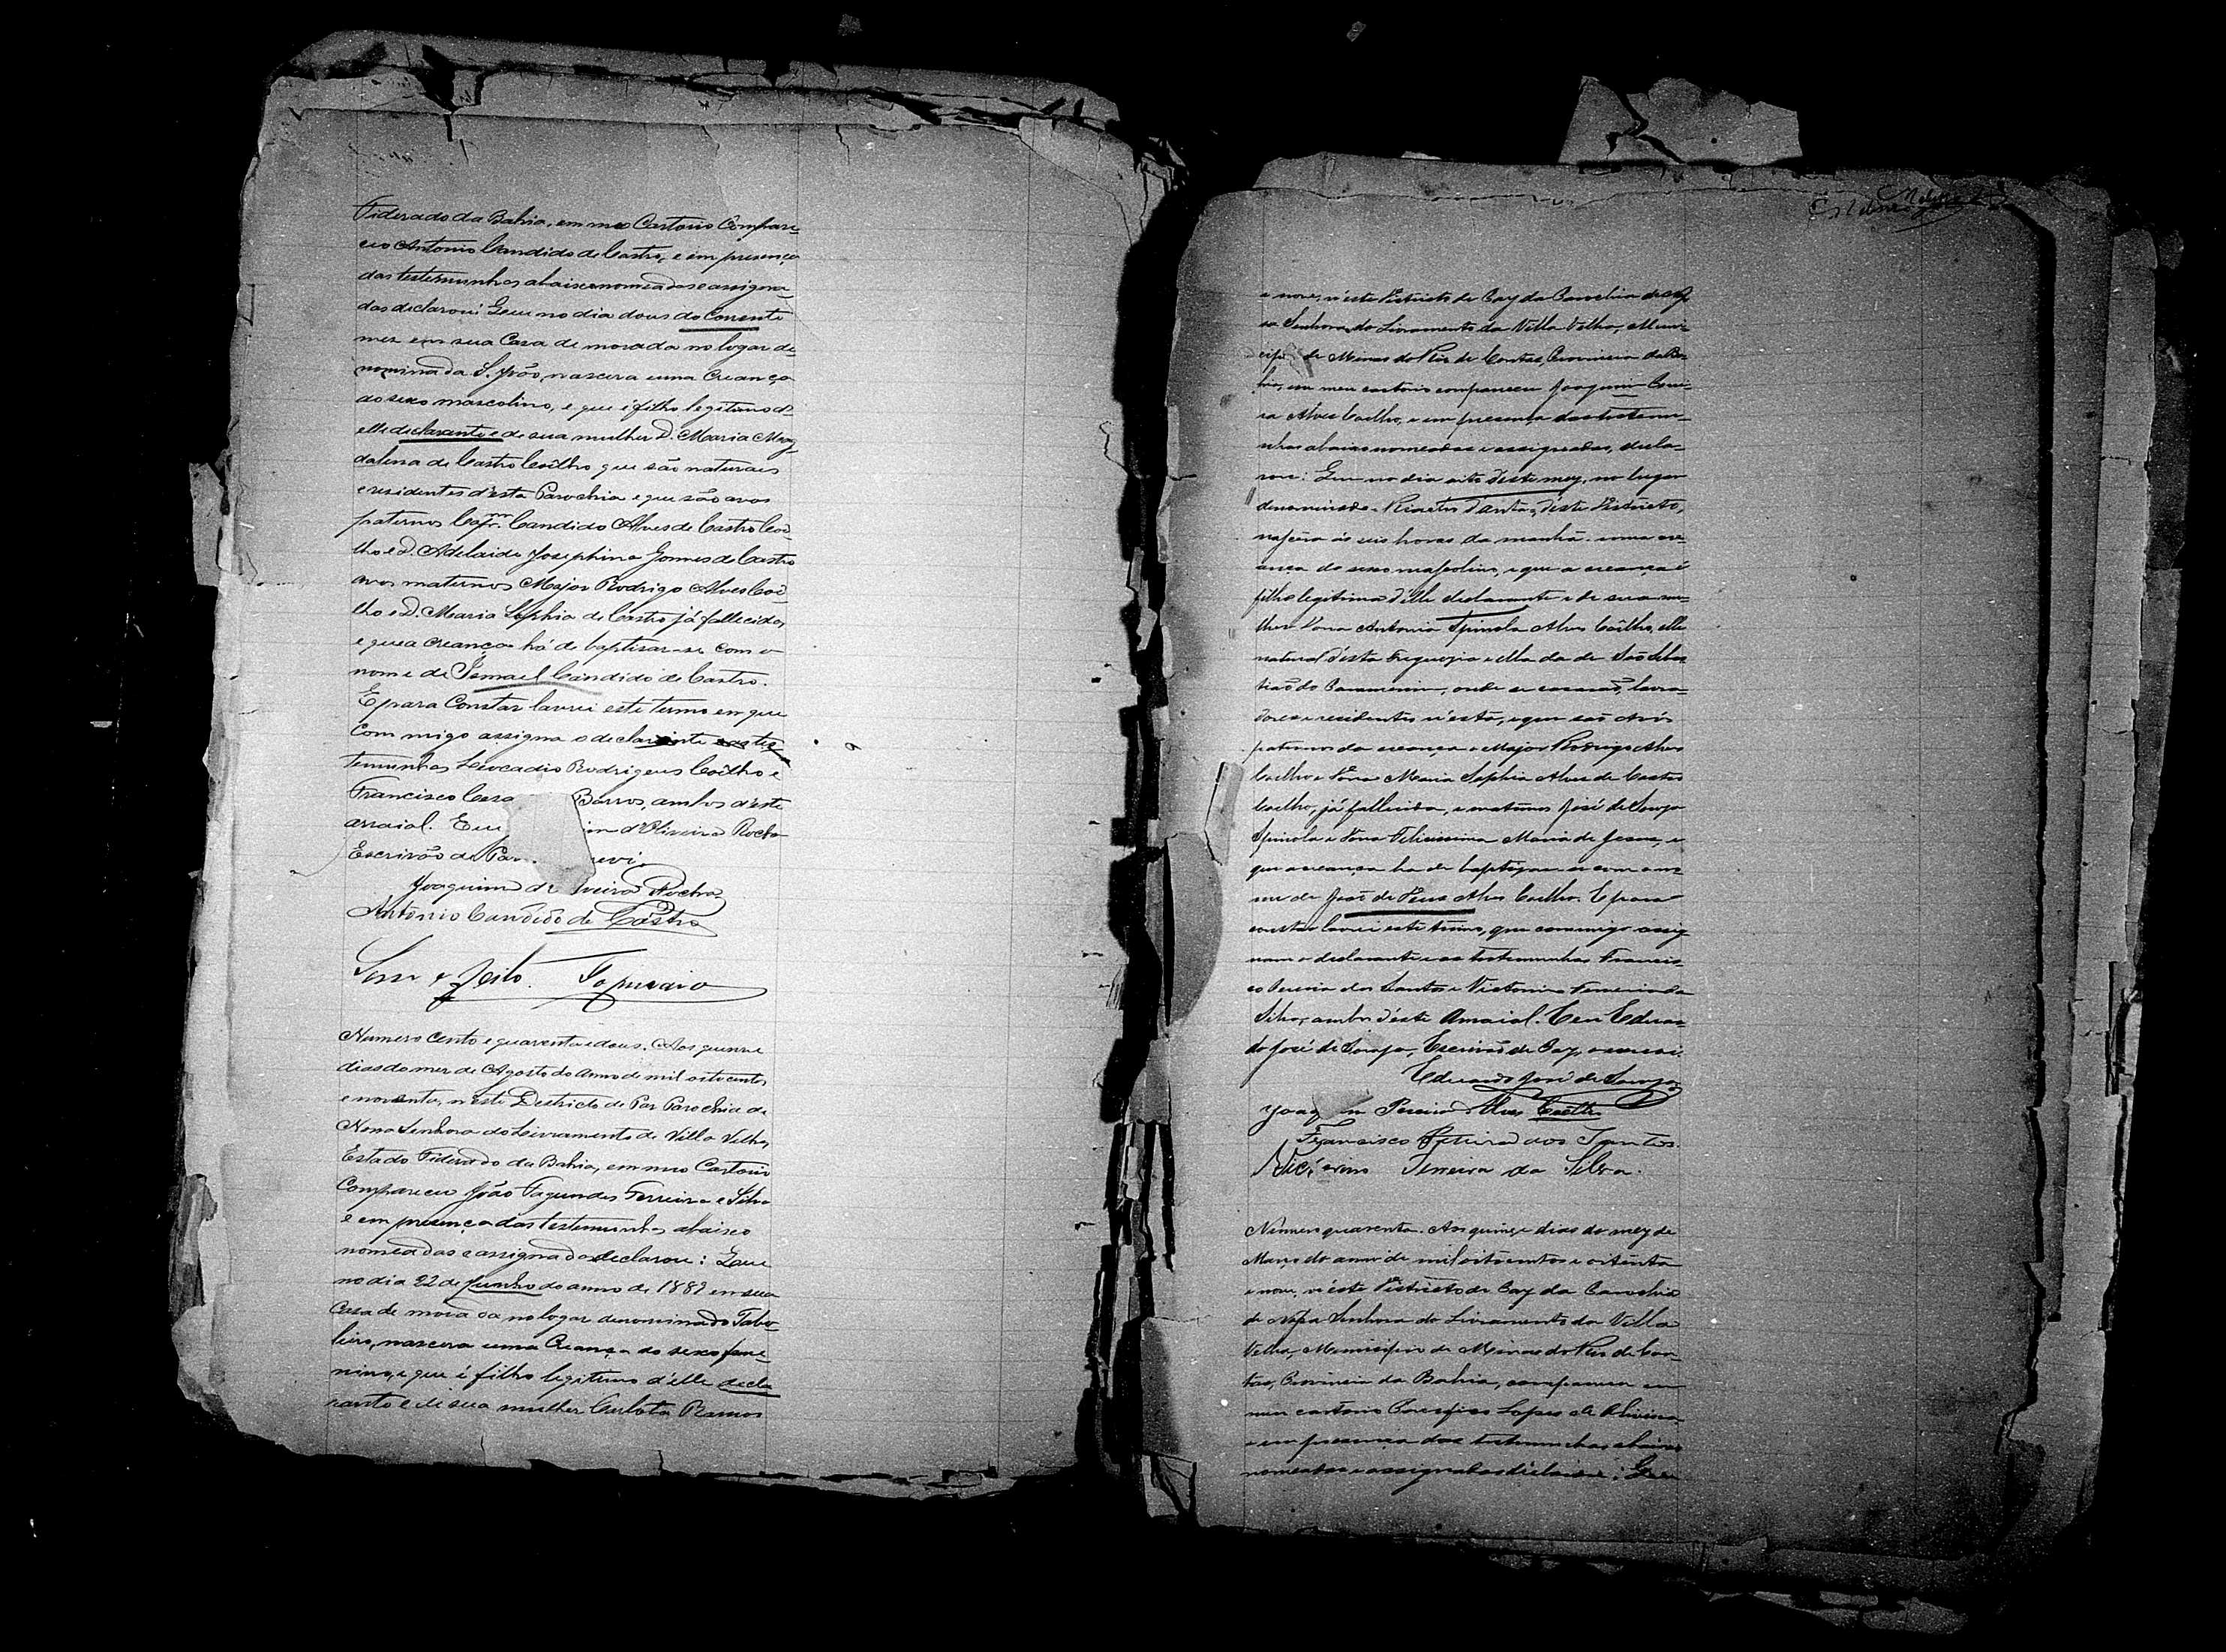 Fiderado da Bahia, em meo Cartorio Compare-
ceo Antonio Candido de Castro, e em presença
das testemunhas abaixo nomeadas e assigna-
das declarou: Que no dia dous do Corrente
mez em sua Casa de morada no logar de-
nominada S. João, nascera uma Creança
do sexo mascolino, e que é filho legitimo d'-
elle declarante e de sua mulher D. Maria Mag-
dalena de Castro Coêlho que são naturaes
e residentes d'esta Parochia e que são avos
paternos Capm. Candido Alves de Castro Coe-
lho e D. Adelaide Josephina Gomes de Castro
avos maternos Major Rodrigo Alves Coe-
lho e D. Maria Sophia de Castro já fallecidos,
e que a creança há de baptisar-se com o
nome de Ismael Candido de Castro.
E para Constar lavrei este termo em que
Com migo assigna o declarante e as tes-
temunhas Leocadio Rodrigues Coêlho e
Francisco Barros, ambos d'este
arraial. Eu d'Oliveira Rocha
Escrivão de Pa
Joaquim de Rocha
Antonio Candido de Castro
Numero Cento e quarenta e dous. Aos quinze
dias do mez de Agosto do anno de mil oitocentos
e noventa, n'este Destricto de Paz Parochia de
Nossa Senhora do Livramento de Villa Velha,
Estado Fiderado da Bahia, em meo Cartorio
Compareceu João Fagundes Ferreira e Silva
e em presença das testemunhas abaixo
nomeadas e assignadas declarou: Que
no dia 22 de Junho do anno de 188 em sua
Casa de morada no logar denominado Tabo-
leiro, nascera uma Creança do sexo feme-
nino, e que é filho legitimo d'elle decla-
rante e de sua mulher Carlota Ramos
e nove, n'este Districto de Paz da Parochia de Nos-
sa Senhora do Livramento da Villa Velha, Muni-
cipio de Minas do Rio de Contas, Provincia da Ba-
hia, em meu cartorio compareceu Joaquim Perei-
ra Alves Coelho, e em presença das testemu-
nhas abaixo nomeadas e assignadas, decla-
rou: Que no dia oito d'este mez, no lugar
denominado d'Anta, d'este Districto,
nasceu ás seis horas da manhã uma cre-
ança do sexo mascolino, e que a creança é
filho legitimo d'elle declarante e de sua mu-
lher Dona Antonia Spinola Alves Coêlho, elle
natural d'esta freguezia e ella da de São Sebas-
tião do onde se casarão, lavra-
dores e residentes n'esta, e que são Avós
paternos da creança o Major Rodrigo Alves
Coelho e Dona Maria Sophia Alves de Castro
Coelho, já fallecida, e maternos José de Souza
Spinola e Dona Felicissima Maria de Jesus, e
que a creança ha de baptizar-se com o no-
me de João de Deus Alves Coelho. E para
constar lavrei este termo, que commigo assig-
nam o declarante e as testemunhas Francis-
co Pereira dos Santos e Victorino Ferreira da
Silva, ambos d'este Arraial. Eu Eduar-
do José de Souza, Escrivão de Paz, o escrevi.
Eduardo José de Souza
Joaquim Pereira Alves Coelho
Francisco Pereira dos Santos.
Victorino Ferreira da Silva.
Numero quarenta. Aos quinze dias do mez de
Março do anno de mil oitocentos e oitenta
e nove, n'este Districto de Paz da Parochia
de Nossa Senhora do Livramento da Villa
Velha, Municipio de Minas do Rio de Con-
tas, Provincia da Bahia, compareceu em
meu cartorio Lopes de Oliveira
e em presença das testemunhas abaixo
nomeadas e assignadas declarou: Que